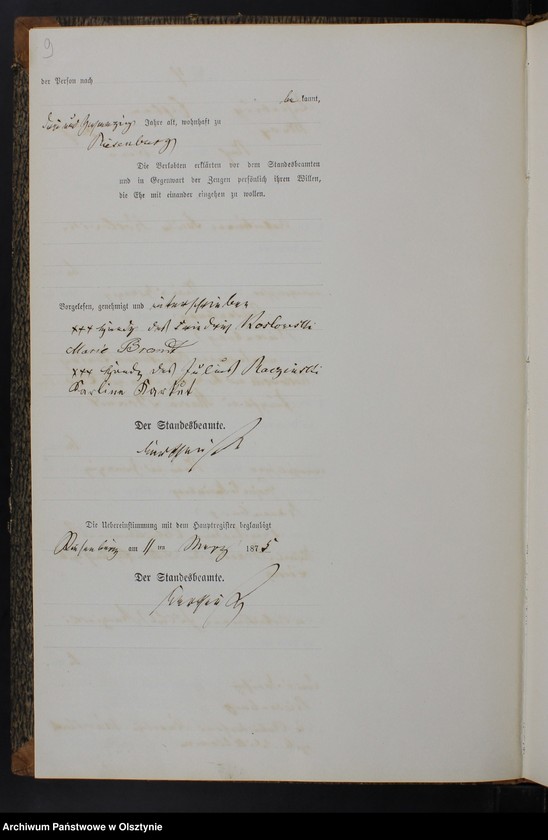 9
der Person nach
be kannt,
Jahre alt, wohnhaft zu
Riesenburg
Die Verlobten erklärten vor dem Standesbeamten
und in Gegenwart der Zeugen persönlich ihren Willen,
die Ehe mit einander eingehen zu wollen.
Vorgelesen, genehmigt und unterschrieben
+++ des Friedrich Koslowski
Marie Brandt
+++ des Julius Raczinski
Karline
Der Standesbeamte.
Die Uebereinstimmung mit dem Hauptregister beglaubigt
Riesenburg am 11 ten Merz 1875
Der Standesbeamte.
Archiwum Państwowe w Olsztynie